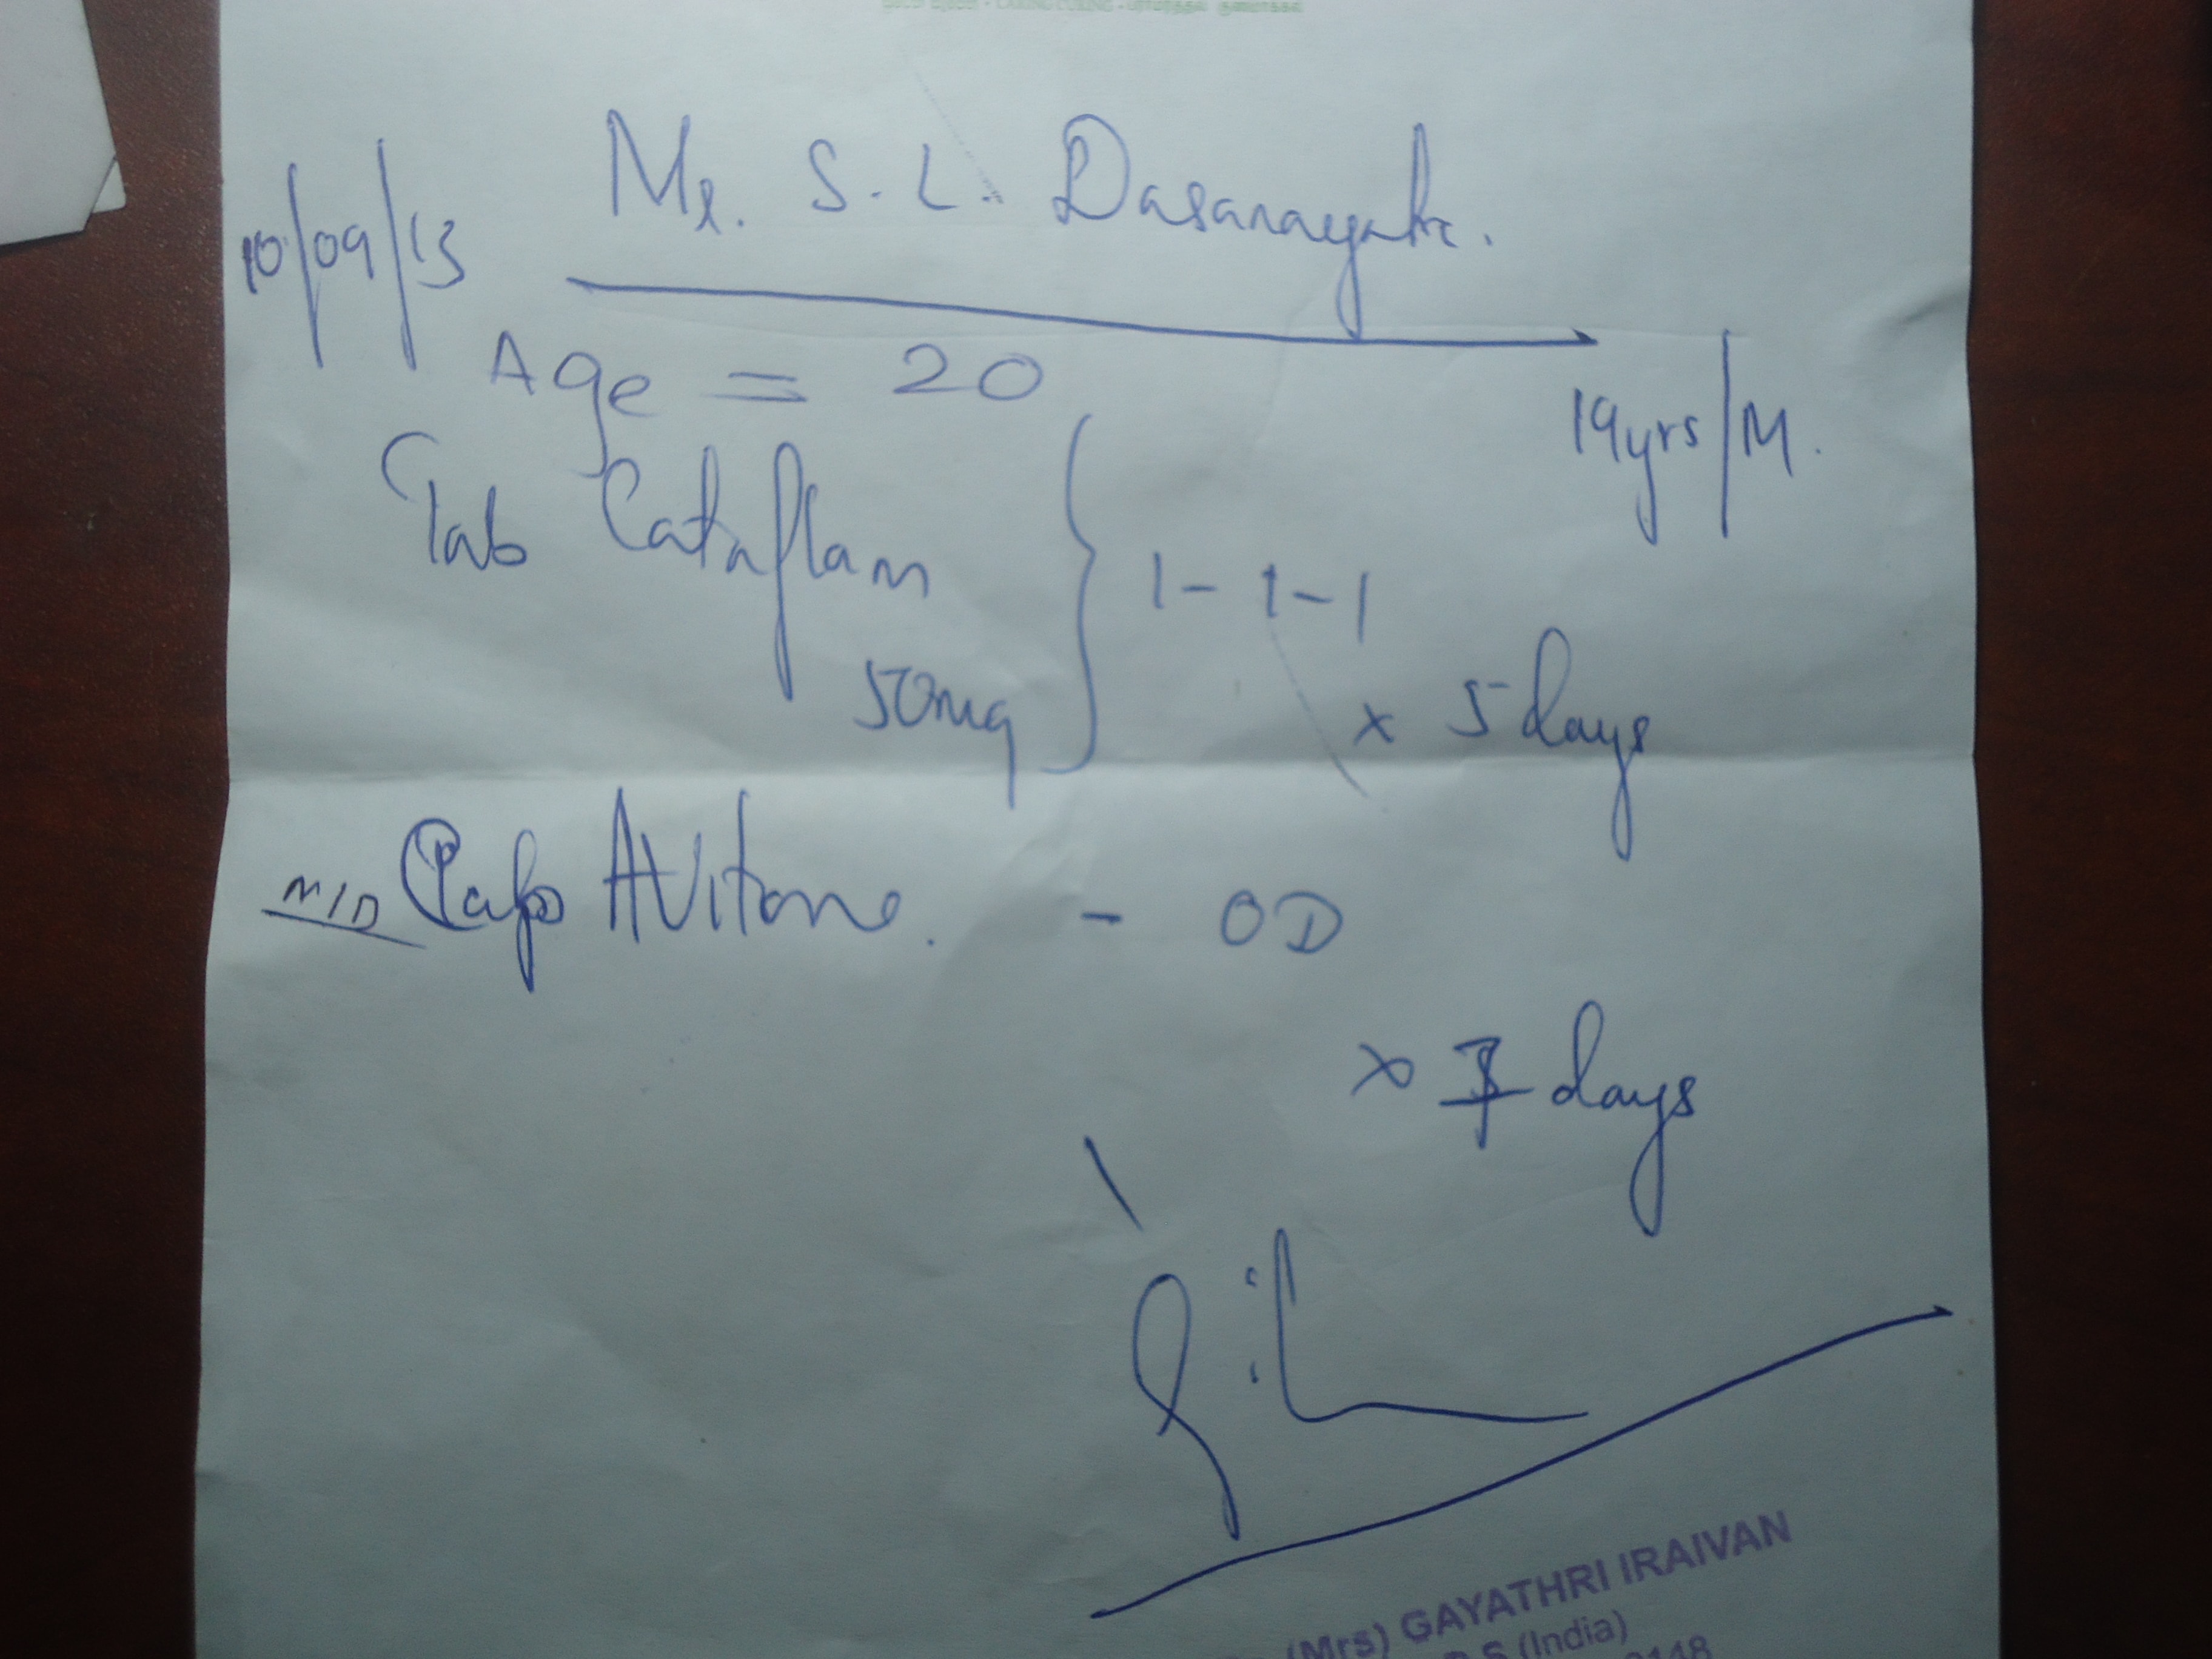 Mr. S. L. Dasanayake.
10/09/13
Age = 20
19yrs/M.
Tab Cataflam
50mg } 1-1-1
x 5 days
N/D Caps AVitone. - OD
x days
(Mrs) GAYATHRI IRAIVAN
S (India)
0148